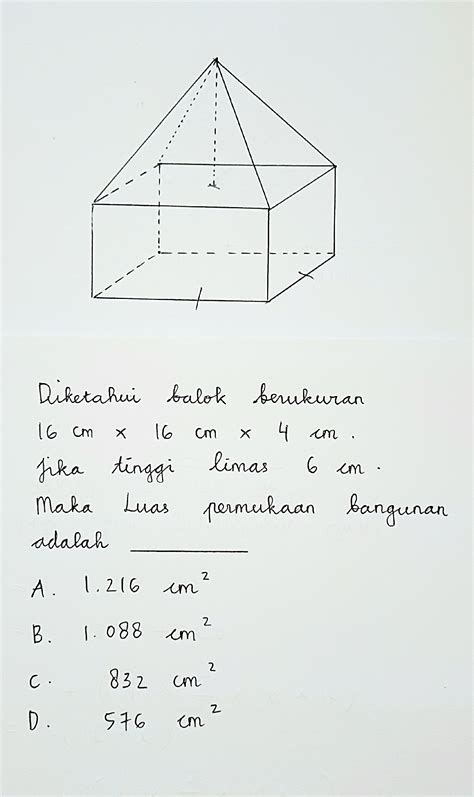 Diketahui balok berukuran
16 cm x 16 cm x 4 cm.
Jika tinggi limas 6 cm.
Maka Luas permukaan bangunan
adalah ___________
A. 1.216 cm²
B. 1.088 cm²
C. 832 cm²
D. 576 cm²